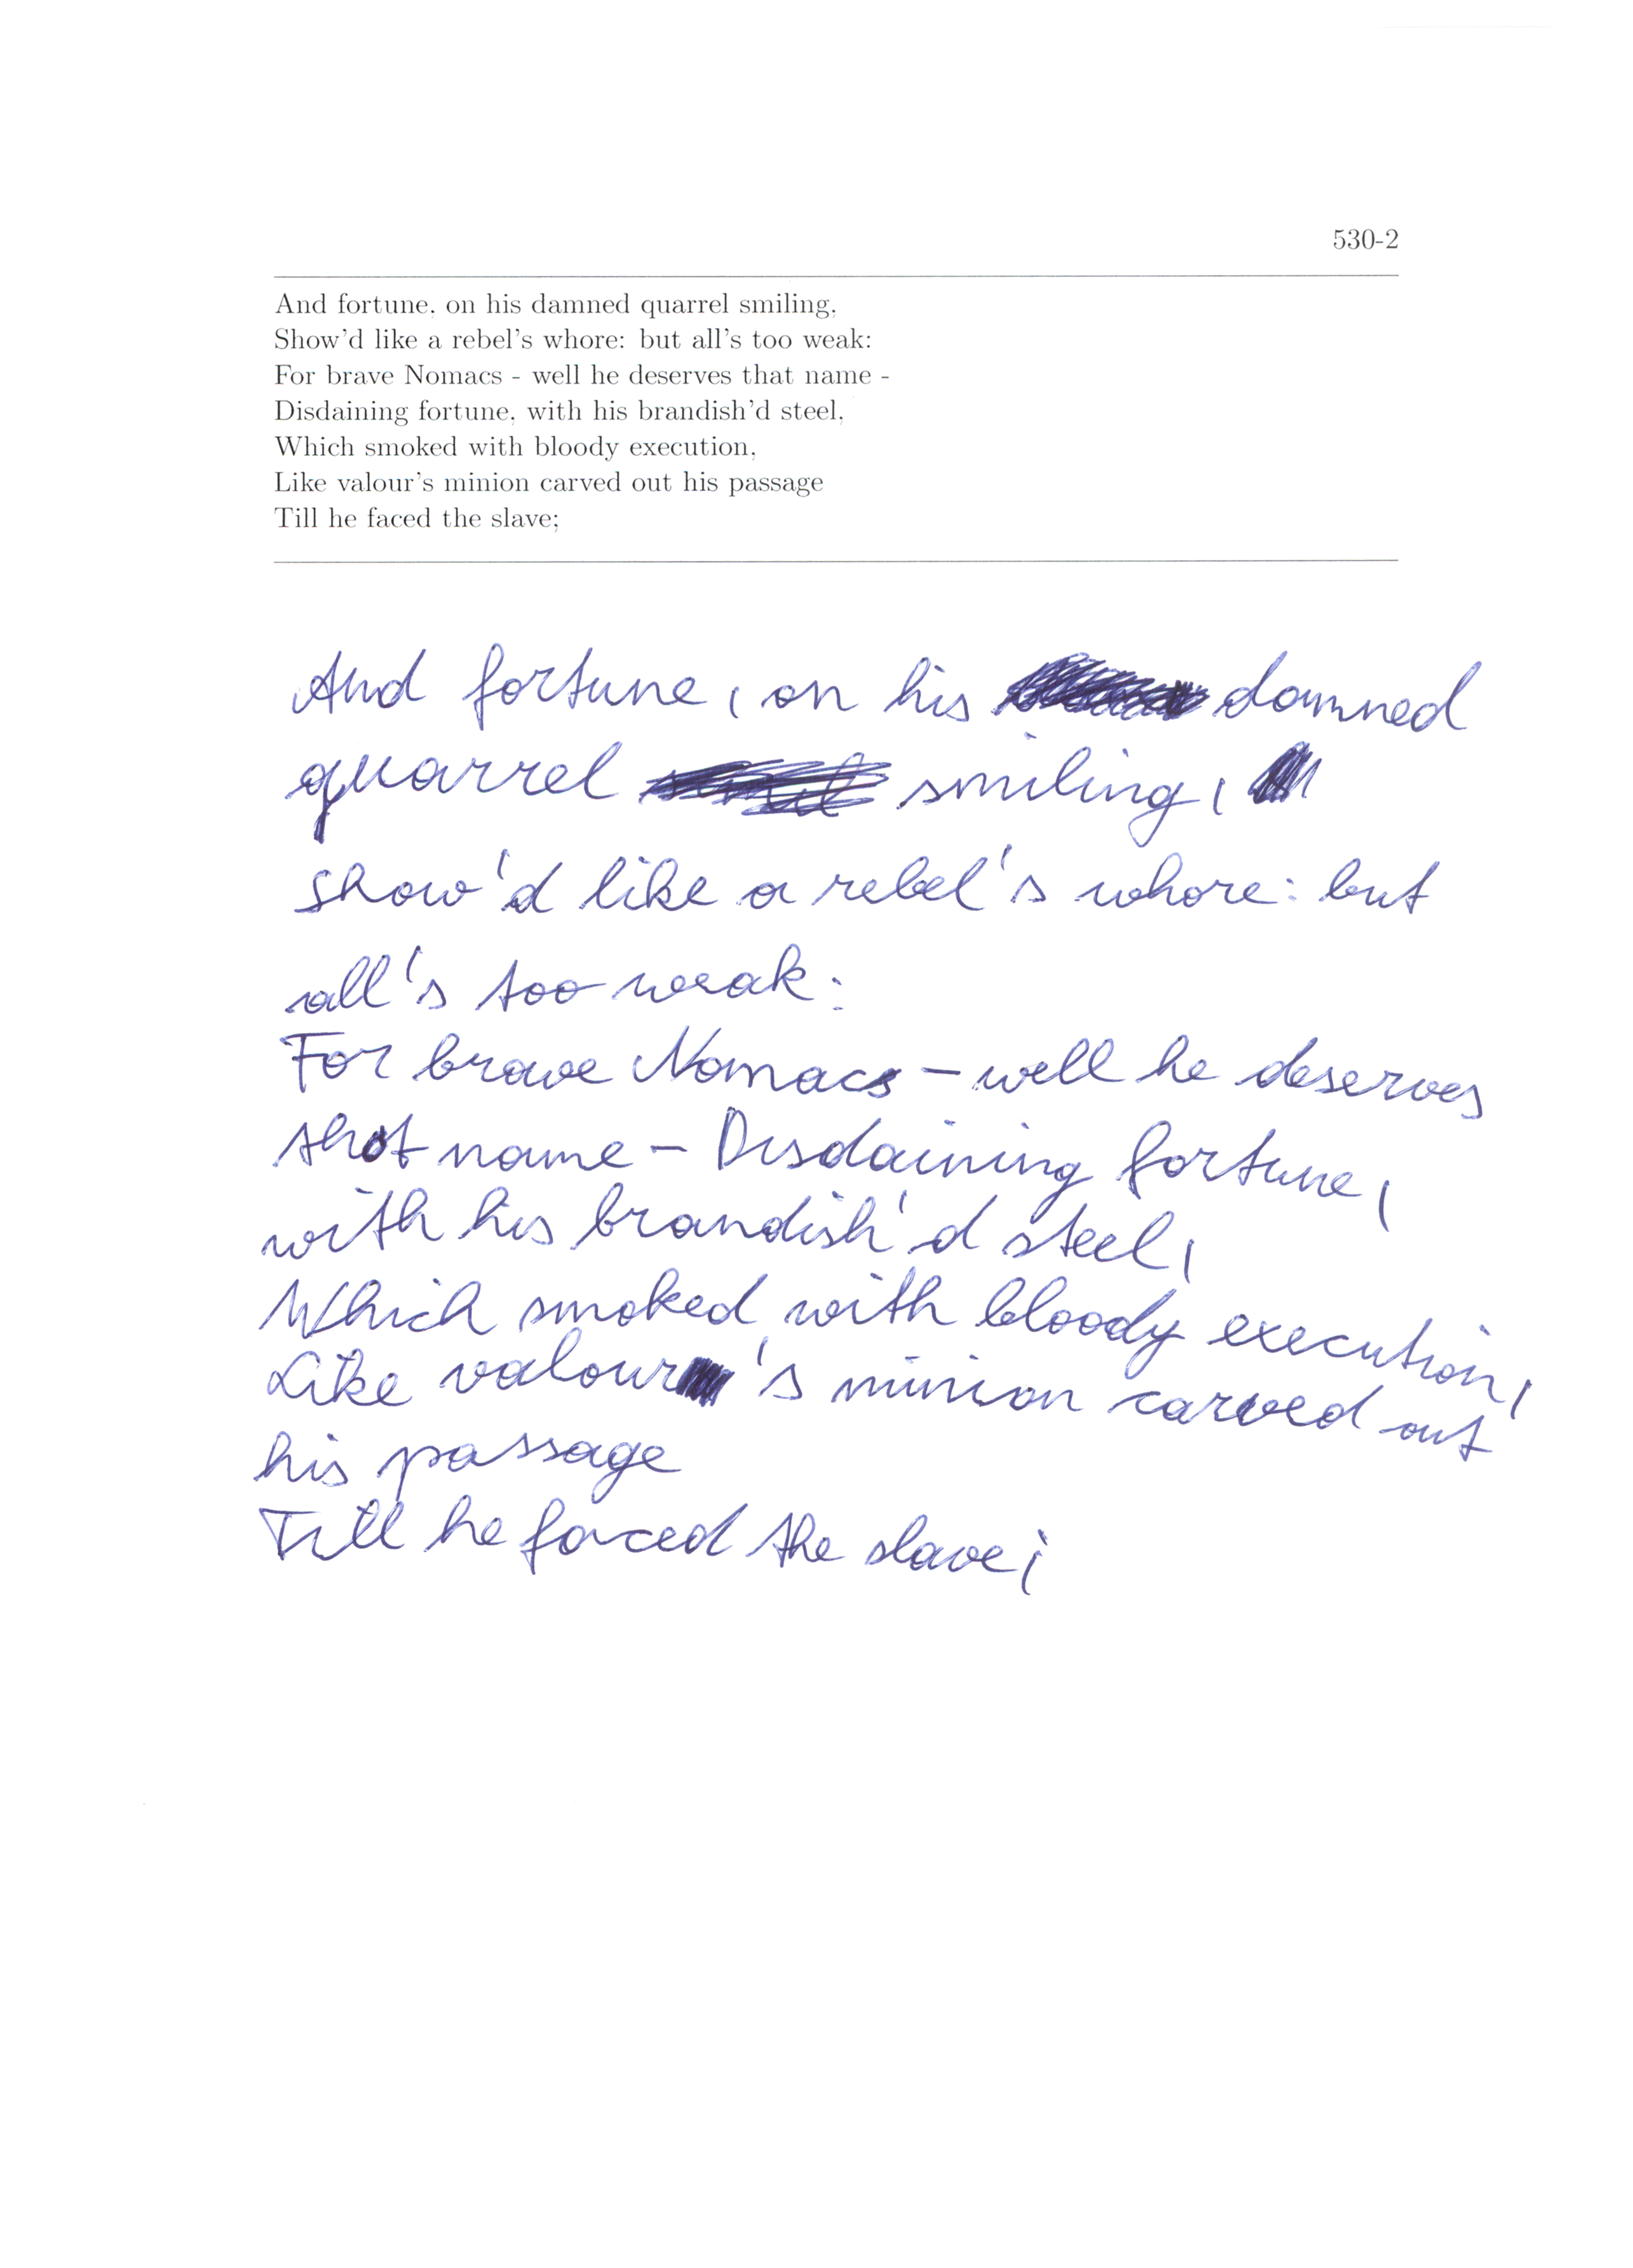 530-2
And fortune, on his damned quarrel smiling,
Show'd like a rebel's whore: but all's too weak:
For brave Nomacs - well he deserves that name -
Disdaining fortune, with his brandish'd steel,
Which smoked with bloody execution,
Like valour's minion carved out his passage
Till he faced the slave;
And fortune, on his damned
quarrel smiling,
show'd like a rebel's whore: but
all's too weak:
For brave Nomacs - well he deserves
that name - Disdaining fortune,
with his brandish'd steel,
Which smoked with bloody execution,
Like valour's minion carved out
his passage
Till he faced the slave;